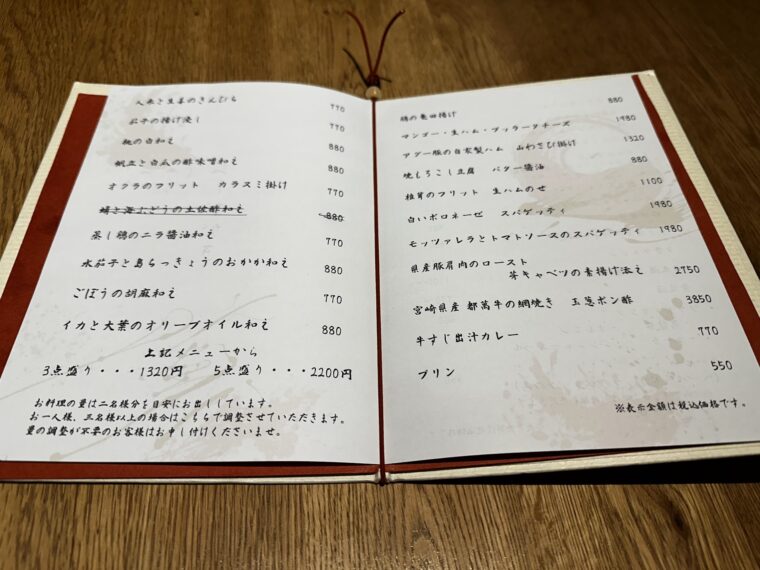 人参と生姜のきんぴら 770
茄子の揚げ浸し 770
桃の白和え 880
帆立と白瓜の酢味噌和え 880
オクラのフリット カラスミ掛け 770
海ぶどうの土佐酢和え 880
蒸し鶏のニラ醤油和え 770
水茄子と島らっきょうのおかか和え 880
ごぼうの胡麻和え 770
イカと大葉のオリーブオイル和え 880
上記メニューから
3点盛り・・・1320円 5点盛り・・・2200円
お料理の量は二名様分を目安にお出ししています。
お一人様、三名様以上の場合はこちらで調整させていただきます。
量の調整が不要のお客様はお申し付けくださいませ。
鶏の竜田揚げ 880
マンゴー・生ハム・ブッラータチーズ 1980
アグー豚の自家製ハム 山わさび掛け 1320
焼もろこし豆腐 バター醤油 880
椎茸のフリット 生ハムのせ 1100
白いボロネーゼ スパゲッティ 1980
モッツァレラとトマトソースのスパゲティ 1980
県産豚肩肉のロースト
芽キャベツの素揚げ添え 2750
宮崎県産 都萬牛の網焼き 玉葱ポン酢 3850
牛すじ出汁カレー 770
プリン 550
※表示金額は税込価格です。